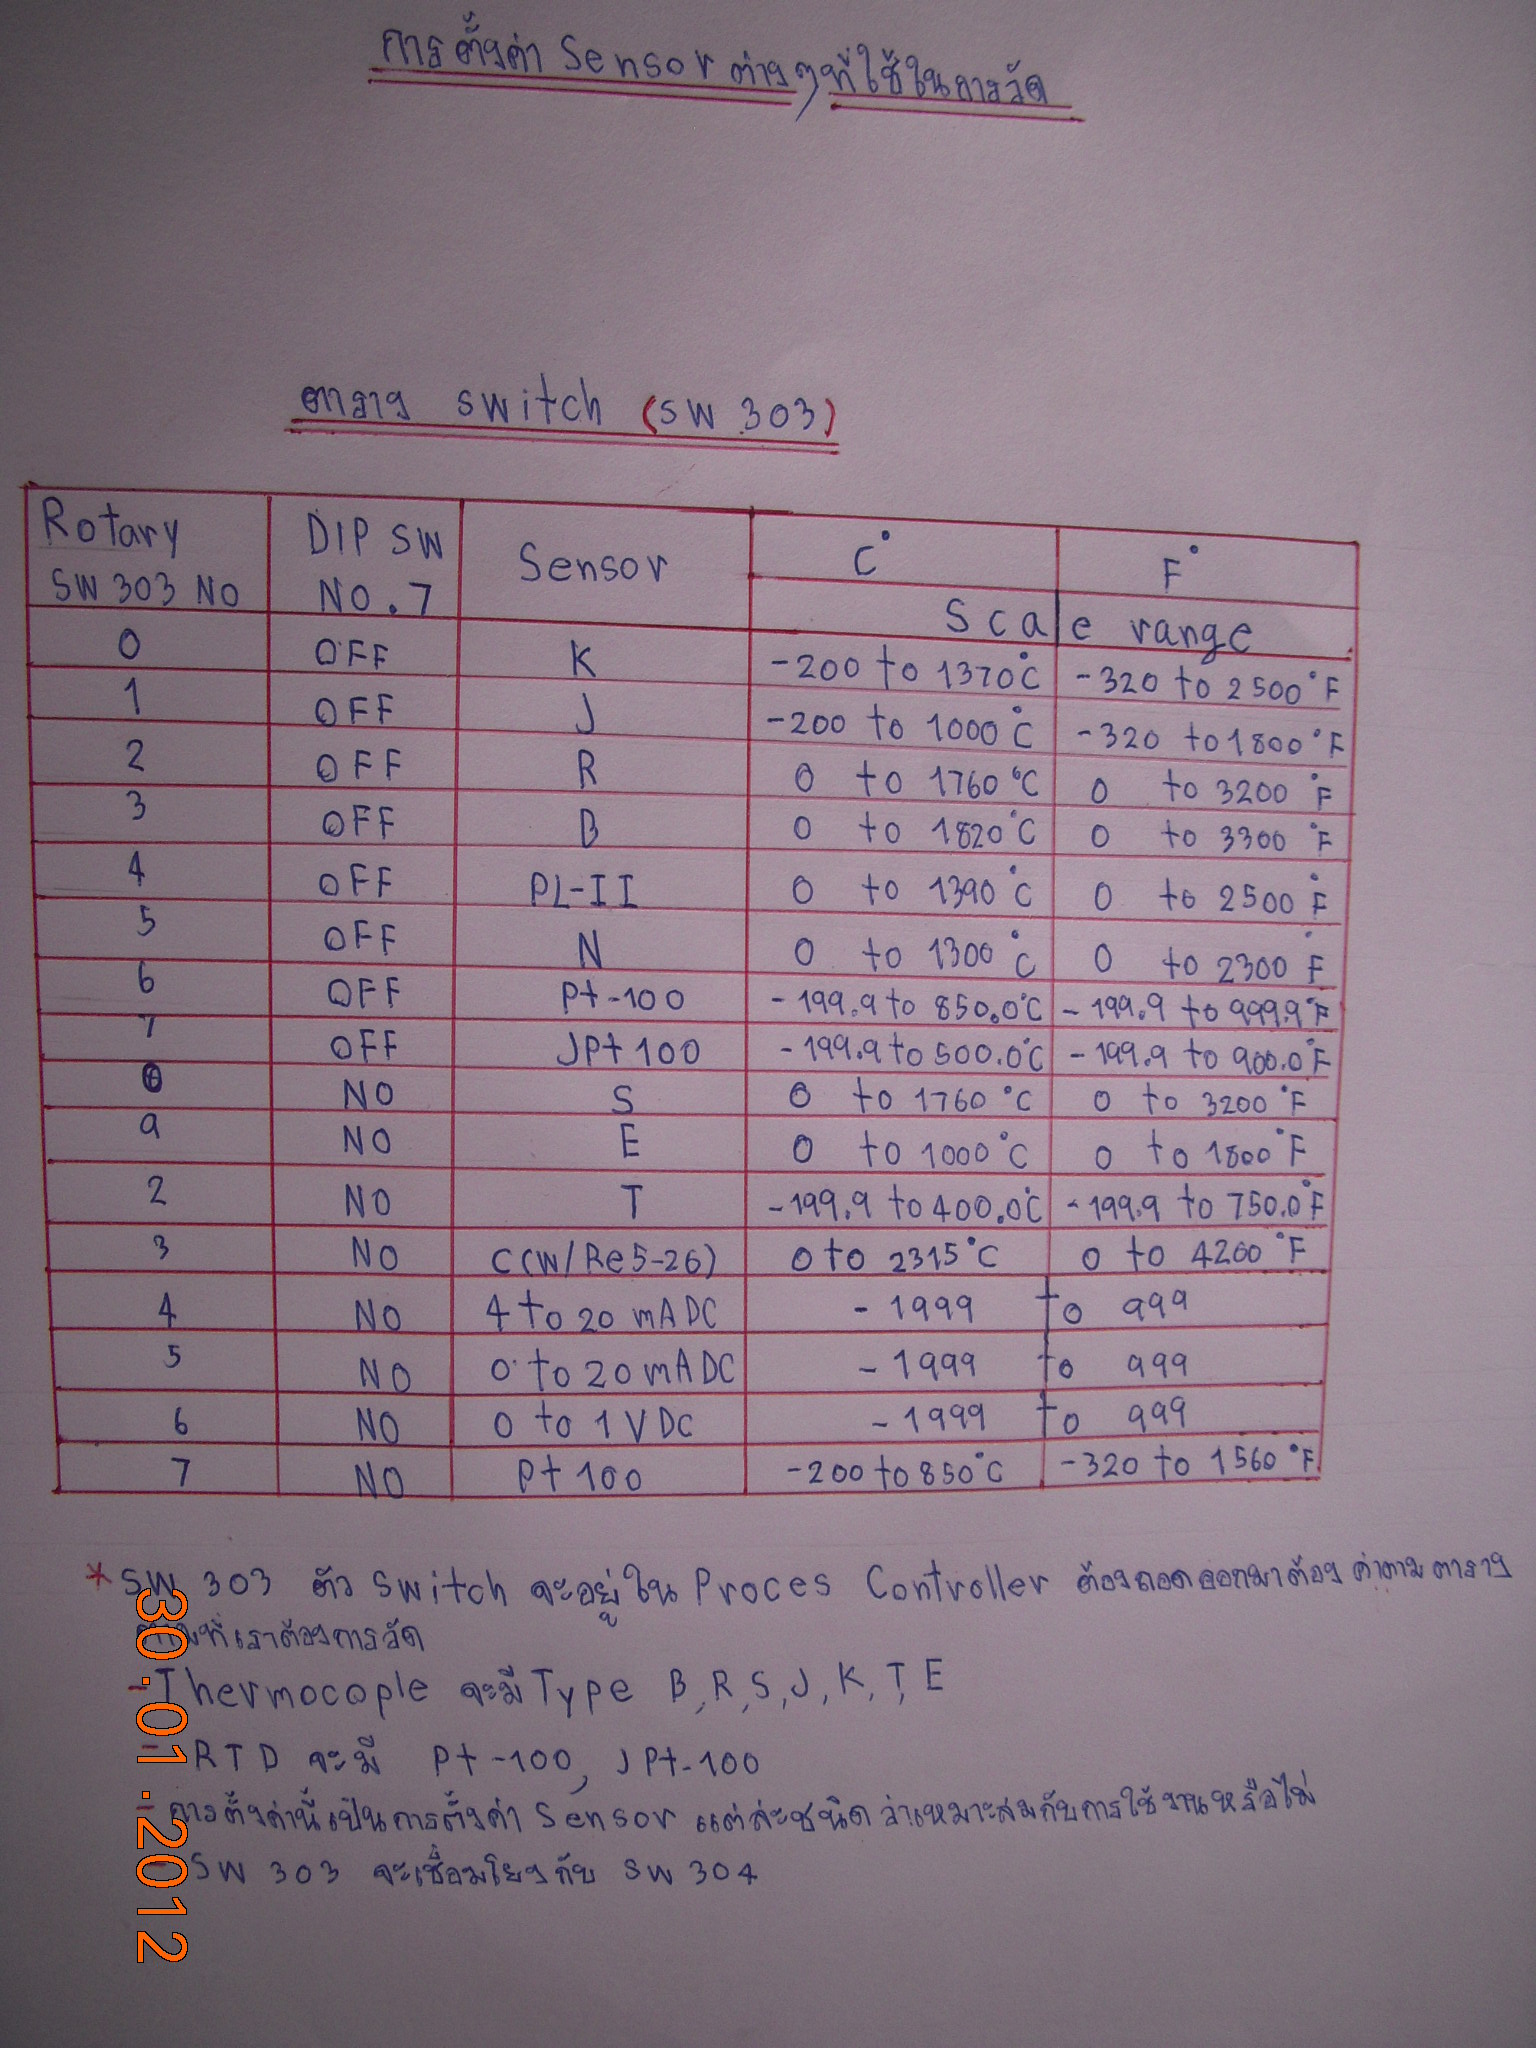 การตั้งค่า Sensor ต่างๆที่ใช้ในการวัด
ตาราง switch (SW 303)
Rotary SW 303 NO DIP SW NO.7 Sensor C° F°
Scale range
0 OFF K -200 to 1370°C -320 to 2500°F
1 OFF J -200 to 1000°C -320 to 1800°F
2 OFF R 0 to 1760°C 0 to 3200°F
3 OFF B 0 to 1820°C 0 to 3300°F
4 OFF PL-II 0 to 1390°C 0 to 2500°F
5 OFF N 0 to 1300°C 0 to 2300°F
6 OFF Pt-100 -199.9 to 850.0°C -199.9 to 999.9°F
7 OFF JPt 100 -199.9 to 500.0°C -199.9 to 900.0°F
0 NO S 0 to 1760°C 0 to 3200°F
9 NO E 0 to 1000°C 0 to 1800°F
2 NO T -199.9 to 400.0°C -199.9 to 750.0°F
3 NO C(W/Re5-26) 0 to 2315°C 0 to 4200°F
4 NO 4 to 20 mADC -1999 to 999
5 NO 0 to 20 mADC -1999 to 999
6 NO 0 to 1 VDC -1999 to 999
7 NO Pt 100 -200 to 850°C -320 to 1560°F
* SW 303 ตัว switch จะอยู่ใน Proces Controller ต้องถอดออกมาต้อง ค่าตามตาราง
ตามที่เราต้องการวัด
- Thermocople จะมี Type B, R, S, J, K, T, E
- RTD จะมี Pt-100, JPt-100
- การตั้งค่านี้เป็นการตั้งค่า Sensor แต่ล่ะชนิดว่าเหมาะสมกับการใช้งานหรือไม่
- SW 303 จะเชื่อมโยงกับ SW 304
30.01.2012